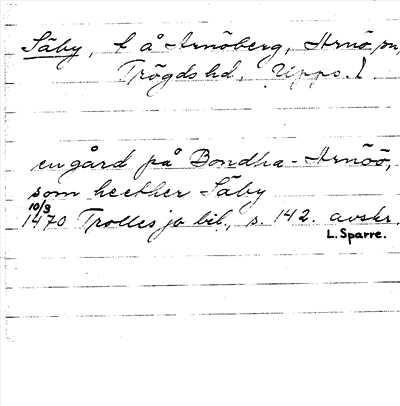 Säby, f å Arnöberg, Arnö sn,
Trögds hd, Upps. l
en gård på Bondha-Arnöö,
som heether Säby
10/3
1470 Trolles jo bil., s. 142. avskr.
L. Sparre.